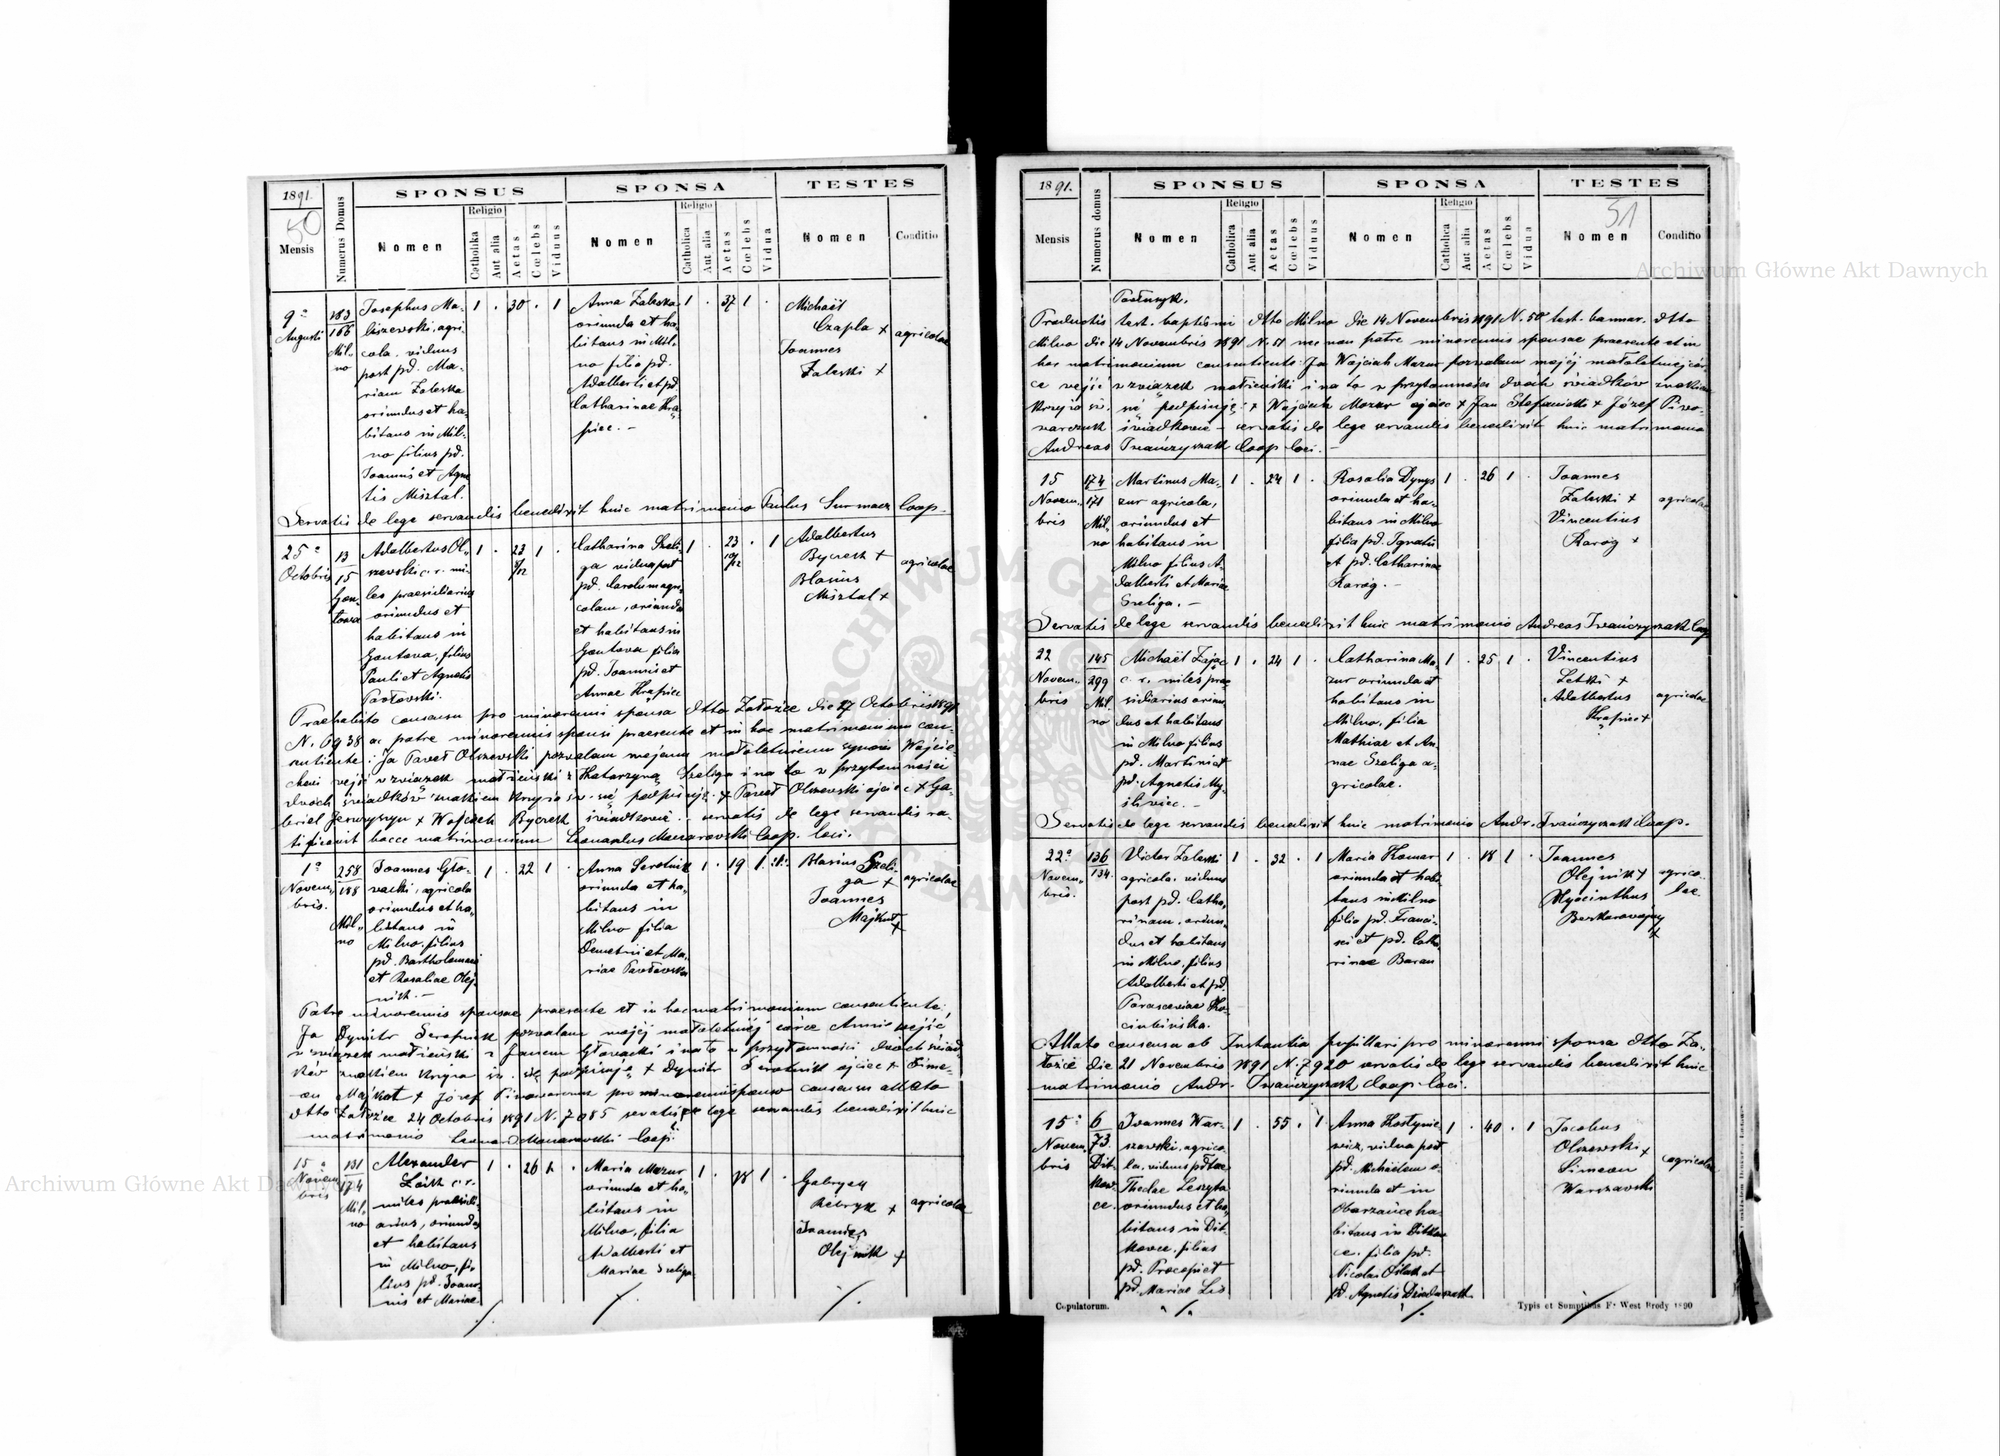 1891.
50
Mensis
Numerus Domus
SPONSUS
Nomen
Religio
Catholika
Aut alia
Aetas
Cœlebs
Viduus
SPONSA
Nomen
Religio
Catholica
Aut alia
Aetas
Cœlebs
Vidua
TESTES
Nomen
Conditio
9ª
Augusti
183
166
Mil-
no
Josephus Ma-
liszewski, agri-
cola. viduus
post pd. Ma-
riam Zaleska
oriundus et ha-
bitans in Mil-
no filius pd.
Joannis et Agne-
tis Misztal.
1 . 30 . 1
Anna Zaleska
oriunda et ha-
bitans in Mil-
no filia pd.
Adalberti et pd
Catharinae Kra-
piec. -
1 . 37 1 .
Michaël
Czapla +
Joannes
Zaleski +
agricolae
Servatis de lege servandis benedixit huic matrimonio Paulus Surmacz Coop.
25ª
Octobris
13
15
Gon-
towa
Adalbertus Ol-
szewski c. r. mi-
les praesidiarius
oriundus et
habitans in
Gontova, filius
Pauli et Agnetis
Pawłowski.
1 . 23 1 .
Catharina Szeli-
ga vidua post
pd. Carolum agri-
colam, oriunda
et habitans in
Gontova filia
pd. Joannis et
Annae Krąpiec
1 . 23 10/12 . 1
Adalbertus
Byczek +
Blasius
Misztal +
agricolae
Praehabito consensu pro minorenni sponsa dtto Załoźce die 27 Octobris 1891
N. 6938 ac patre minorennis sponsi praesente et in hoc matrimonium con-
sentiente: Ja Paweł Olszewski pozwalam mojemu małoletniemu synowi Wojcie-
chowi vejść v związek małżeński z Katarzyną Szeliga i na to v przytomności
dvóch świadków znakiem krzyża św. się podpisuję. + Paweł Olszewski ojciec + Ga-
briel Jerwyszyn + Wojciech Byczek świadkowie. servatis de lege servandis ra-
tificavit hocce matrimonium Leonardus Mazarowski Coop. loci.
1ª
Novem-
bris.
258
188
Mil-
no
Joannes Gło-
wacki, agricola
oriundus et ha-
bitans in
Milno, filius
pd. Bartholomaei
et Rosaliae Olej-
nik. -
1 . 22 1 .
Anna Serotnik
oriunda et ha-
bitans in
Milno filia
Demetrii et Ma-
riae Pawłowska
1 . 19 1
Blasius Szeli-
ga +
Joannes
Majkut +
agricolae
Patre minorennis sponsae praesente et in hoc matrimonium consentiente:
Ja Dymitr Serotnik pozwalam mojéj małoletniéj córce Annie wejść
v związek małżeński z Janem Głowacki i na to v przytomności dwóch świad-
ków znakiem krzyża św. się podpisuję + Dymitr Serotnik ojciec + Sime-
on Majkut + Józef Piwowarczuk pro minorenni sponso consensu allato
dtto Załoźce 24 Octobris 1891 N. 7085 servatis de lege servandis benedixit huic
matrimonio Leonard Mazarowski Coop.
15ª
Novem-
bris
131
174
Mil-
no
Alexander
Zaik c. r.
miles praesidi-
arius, oriundus
et habitans
in Milno, fi-
lius pd. Joan-
nis et Mariae
1 . 26 1 .
Maria Mazur
oriunda et ha-
bitans in
Milno, filia
Adalberti et
Mariae Szeliga
1 . 18 1 .
Gabryel
Rébryk +
Joannes
Olejnik +
agricolae
1891.
51
Mensis
Numerus domus
SPONSUS
Nomen
Religio
Catholica
Aut alia
Aetas
Cœlebs
Viduus
SPONSA
Nomen
Religio
Catholica
Aut alia
Aetas
Cœlebs
Vidua
TESTES
Nomen
Conditio
Productis test. baptismi dtto Milno die 14 Novembris 1891 N. 50 test. bannor. dtto
Milno die 14 Novembris 1891 N. 51 nec non patre minorennis sponsae praesente et in
hoc matrimonium consentiente: Ja Wojciech Mazur pozwalam mojéj małoletniéj cór-
ce vejść v związek małżeński i na to v przytomności dvóch świadków znakiem
krzyża św. się podpisuję: + Wojciech Mazur ojciec + Jan Stefanicki + Józef Pivo-
warczuk świadkowie - servatis de lege servandis benedixit huic matrimonio
Andreas Iwańczyszak Coop. loci. -
15
Novem-
bris
174
171
Mil-
no
Martinus Ma-
zur agricola,
oriundus et
habitans in
Milno filius A-
dalberti et Mariae
Szeliga. -
1 . 24 1 .
Rosalia Dyngs
oriunda et ha-
bitans in Milno
filia pd. Ignatii
et pd. Catharinae
Karóg. -
1 . 26 1 .
Joannes
Zaleski +
Vincentius
Karóg +
agricolae
Servatis de lege servandis benedixit huic matrimonio Andreas Iwańczyszak Coop
22
Novem-
bris
145
299
Mil-
no
Michaël Zając
c. r. miles prae-
sidiarius oriun-
dus et habitans
in Milno filius
pd. Martini et
pd. Agnetis My-
śliwiec. -
1 . 24 1 .
Catharina Ma-
zur oriunda et
habitans in
Milno, filia
Mathiae et An-
nae Szeliga a-
gricolae.
1 . 25 1 .
Vincentius
Letki +
Adalbertus
Krąpiec +
agricolae
Servatis de lege servandis benedixit huic matrimonio Andr. Iwańczyszak Coop.
22ª
Novem-
bris.
136
134.
Victor Zaleski
agricola. viduus
post pd. Catha-
rinam, oriun-
dus et habitans
in Milno, filius
Adalberti et pd.
Parasceviae Ko-
cinbińska.
1 . 32 . 1
Maria Komar
oriunda et habi-
tans in Milno
filia pd. Franci-
sci et pd. Catha-
rinae Baran
1 . 18 1 .
Joannes
Olejnik +
Hyacinthus
Bezkorowajny
+
agrico-
lae
Allato consensu ab Instantia pupillari pro minorenni sponsa dtto Za-
łoźce die 21 Novembris 1891 N. 7920 servatis de lege servandis benedixit huic
matrimonio Andr. Iwańczyszak Coop. loci.
15ª
Novem-
bris
6
73.
Dit-
kow-
ce.
Joannes War-
szawski, agrico-
la, viduus post
Theclae Leszyta
oriundus et ha-
bitans in Dit-
kovce, filius
pd. Procopi et
pd. Mariae Lis
1 . 55 . 1
Anna Kostynie-
wicz, vidua post
pd. Michaëlem o-
riunda et in
Obarzańce ha-
bitans in Ditkow-
ce, filia pd.
Nicolai Oślak et
pd. Agnetis Dziedoszak
1 . 40 . 1
Jacobus
Olszewski +
Simeon
Warszawski
agricolae
Copulatorum.
Typis et Sumptibus Fr West Brody 1890
Archiwum Główne Akt Dawnych
Archiwum Główne Akt Dawnych